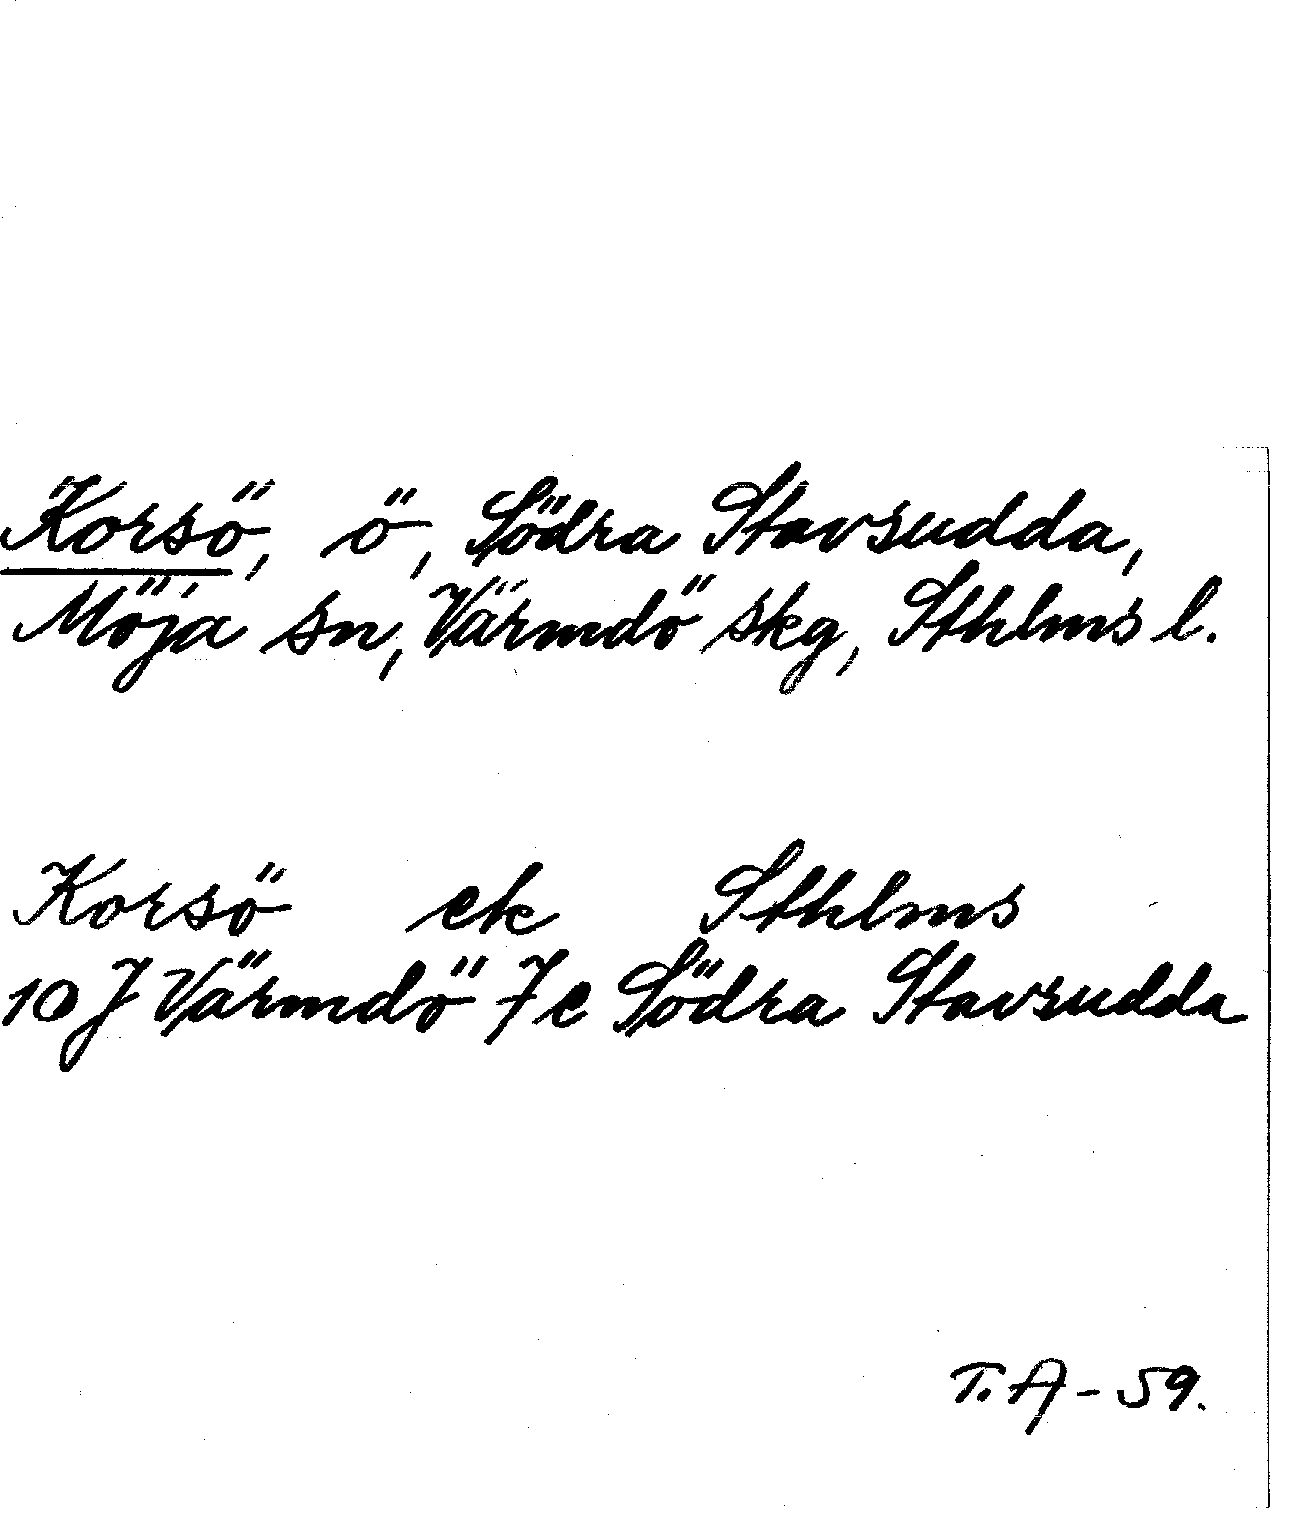 Korsö, ö, Södra Stavsudda,
Möja sn, Värmdö skg, Sthlms l.
Korsö ek Sthlms
10 J Värmdö 7e Södra Stavsudda
T.A-59.